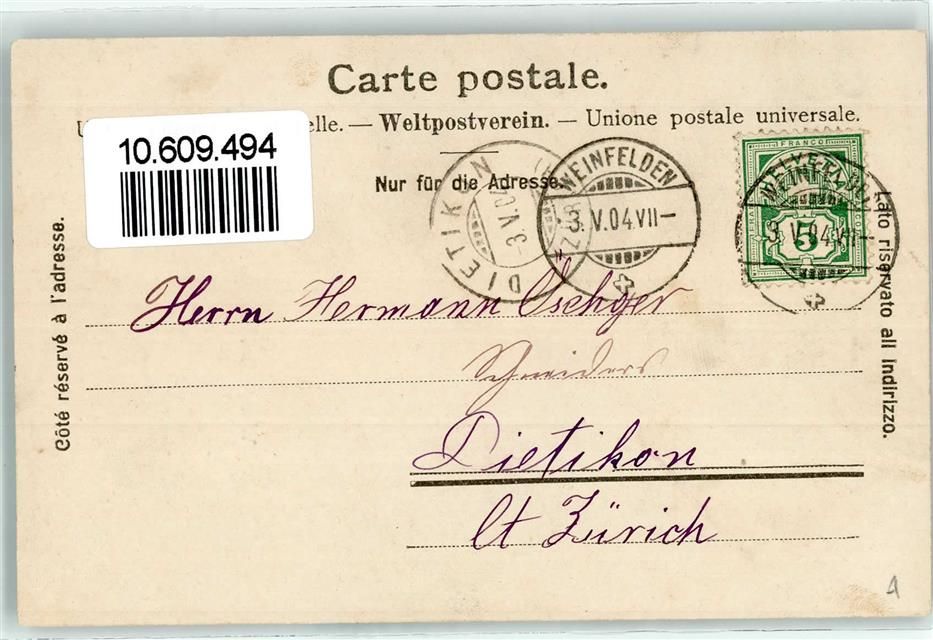 Carte postale.
U elle. — Weltpostverein. — Unione postale universale.
10.609.494
Nur für die Adresse.
DIETIKON
3.V.04
WEINFELDEN
3.V.04.VII—
FRANCO
HELVETIA
5
WEINFELDEN
3.V.04.VII—
Côté réservé à l'adresse.
Lato riservato all indirizzo.
Herrn Hermann Oschger
Schneiders
Dietikon
Ct Zürich